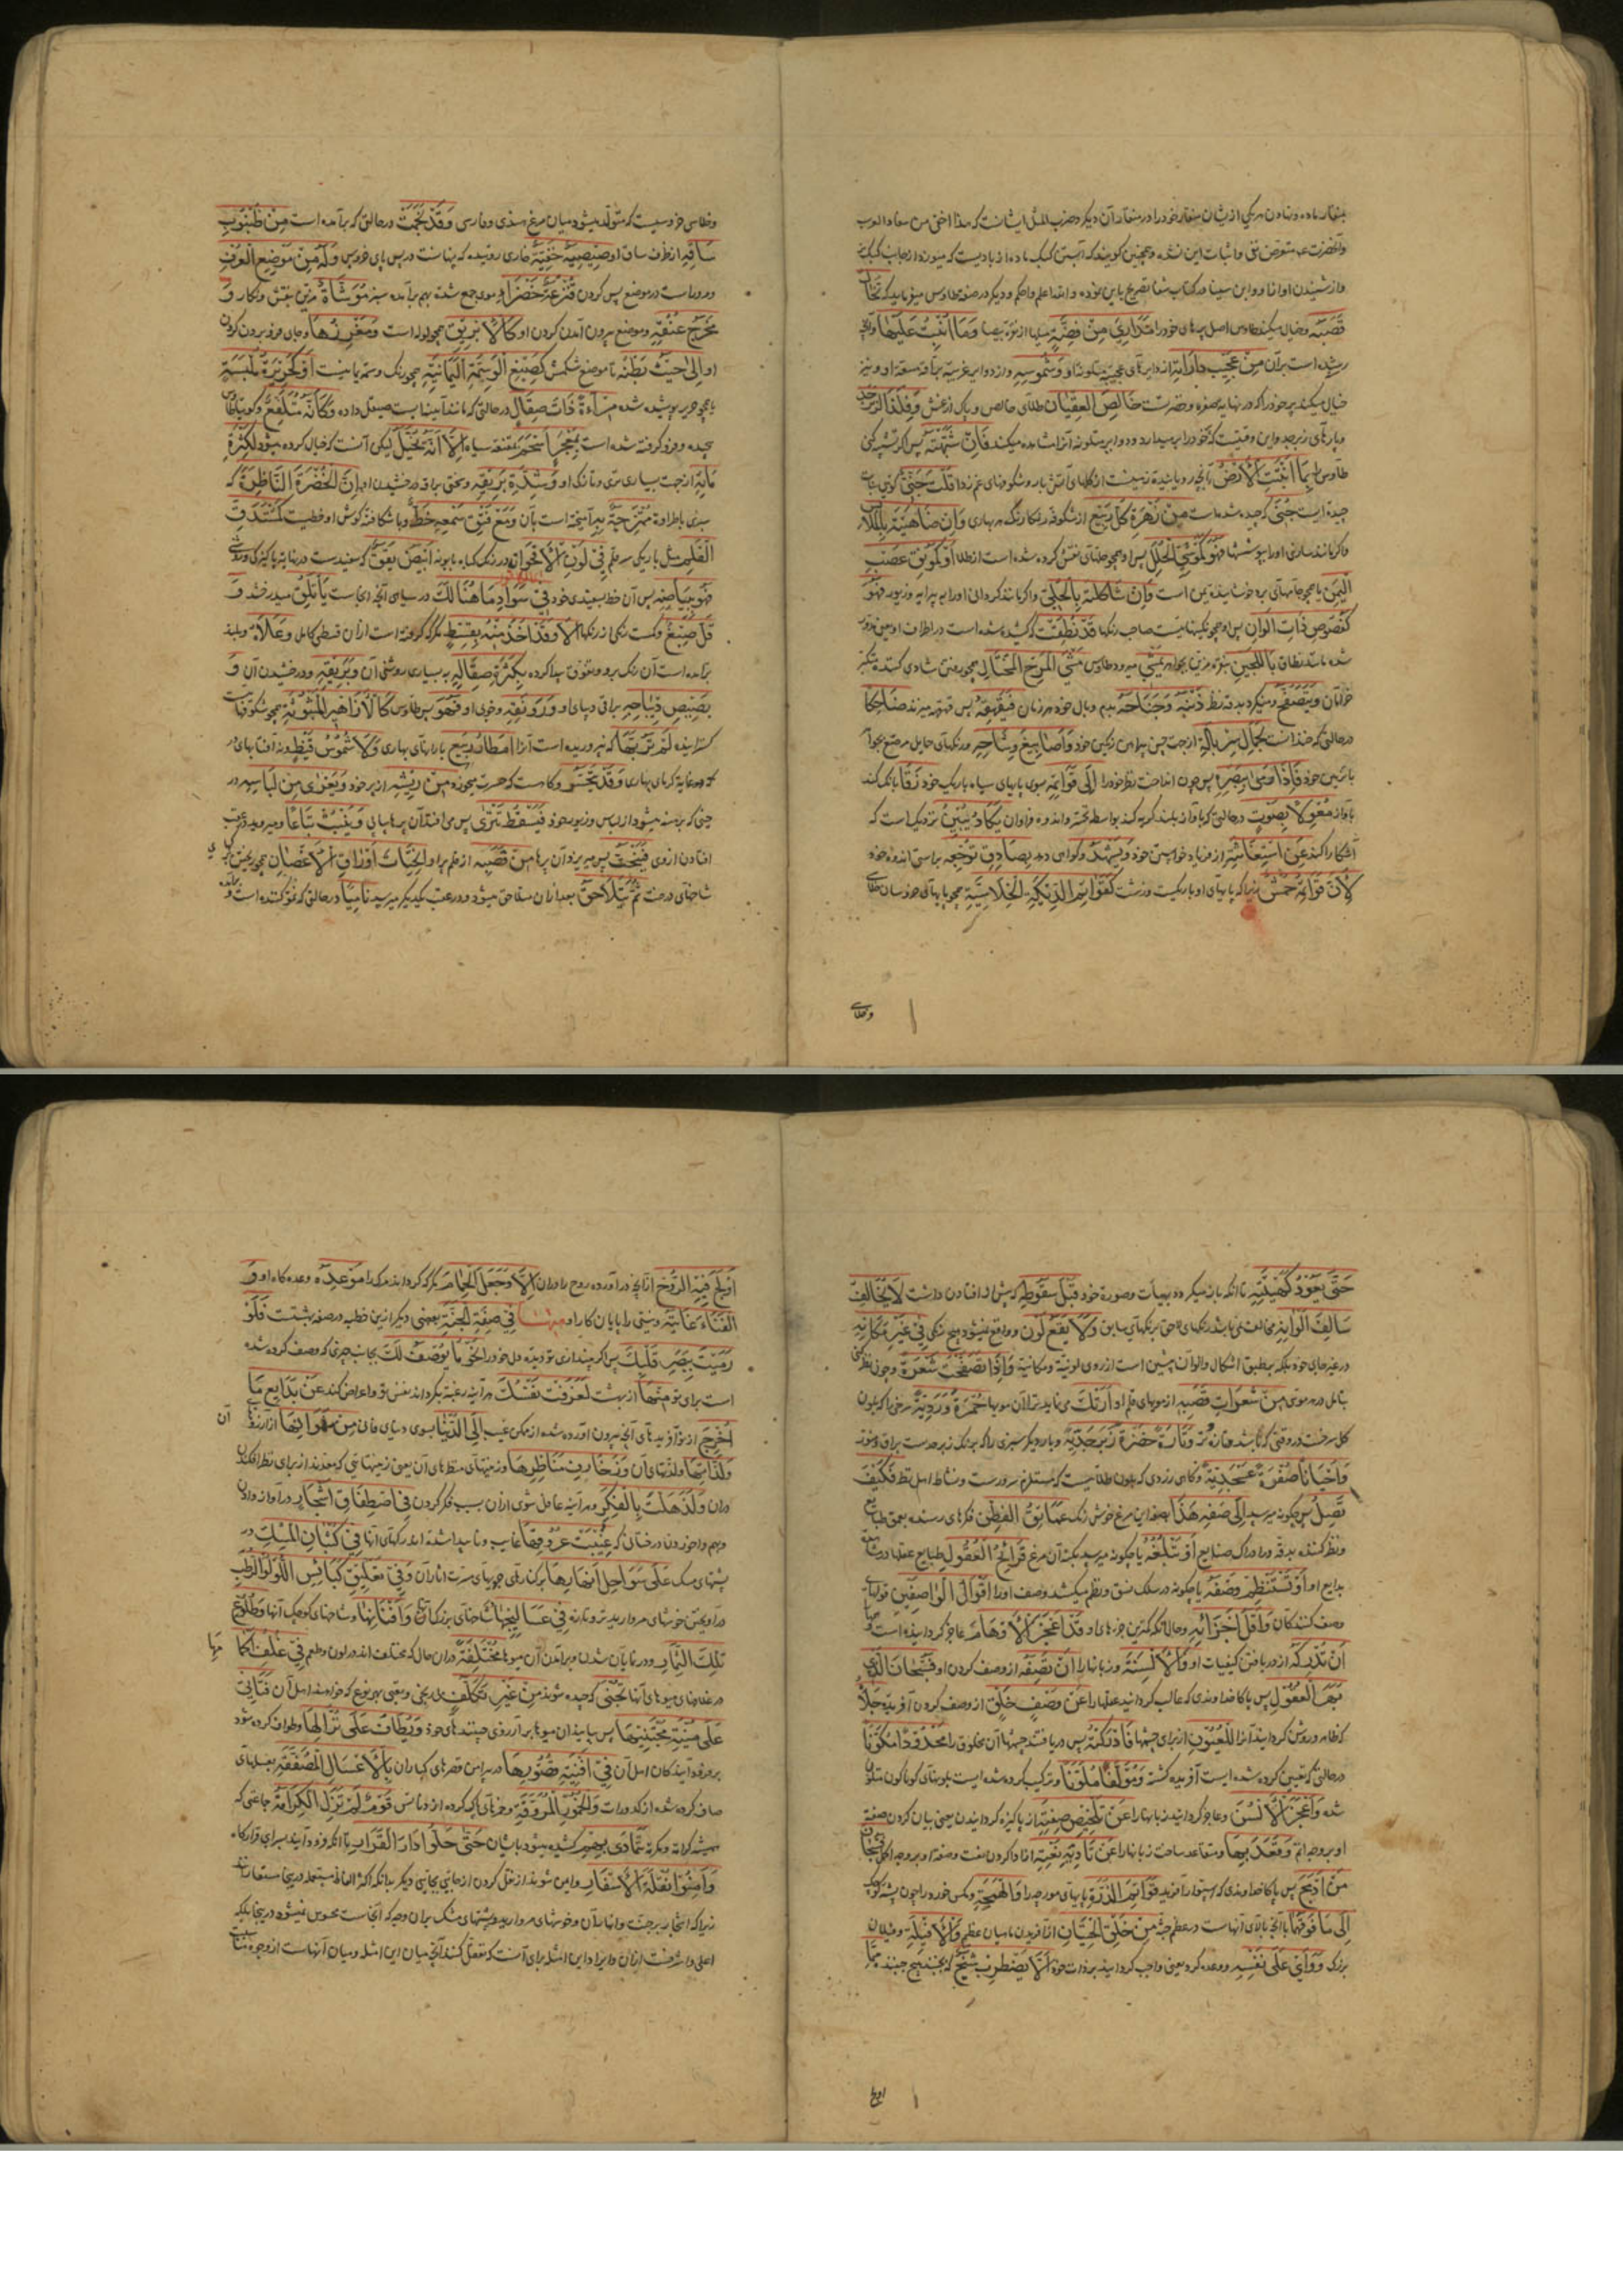 بمنقار ماده و نهادن هر یکی از ایشان منقار خود را در منقار آن دیگر و ضرب المثل ایشانست که هذا اخفی من سفاد الغراب
و آنحضرت متعرض نفی و اثبات این نشده و همچنین گویند که آبستن کبک ماده از بادیست که میوزد از جانب کبک نر
و از شنیدن آواز او و ابن سینا در کتاب شفا تصریح باین نموده و الله اعلم و احکم و دیگر در صفة طاوس میفرماید که تَخَالُ
قَصَبَهُ و خیال میکنی طاوس اصل پرهای خود را مَدَارِيَ مِنْ فِضَّةٍ میلها از نقره بیضا وَمَا أُنْبِتَ عَلَيْهَا و آنچه
رسته است برآن مِنْ عَجِيبِ دَارَاتِهِ از دایرهای عجیبه متلونه او وَشُمُوسِهِ و از دوایر غریبه
خیال میکند پر خود را که در نهایة صفره و نضرتست خَالِصَ الْعِقْيَانِ طلای خالص و پاک از غش وَفِلَذَ الزَّبَرْجَدِ
و پارهای زبرجد و این وقتیست که خود را بر میدارد و دوایر متلونه آنرا مشاهده میکند فَإِنْ شَبَّهْتَهُ پس اگر تشبیه کنی
طاوس را بِمَا أَنْبَتَتِ الْأَرْضُ بآنچه رویانیده زمینست از گلهای آتش بار و شکوفهای غم زدا قُلْتَ جَنِيٌّ گویی
چیده ایست جُنِيَ که چیده شده است مِنْ زَهْرَةِ كُلِّ رَبِيعٍ از شکوفه رنگارنگ هر بهاری وَإِنْ ضَاهَيْتَهُ بِالْمَلَابِسِ
و اگر مانند سازی او را بپوششها فَهُوَ كَمَوْشِيِّ الْحُلَلِ پس او همچو حلهای نقش کرده شده است از طلا أَوْ كَمُونِقِ عَصْبِ
الْيَمَنِ یا همچو جامهای برد خوش آینده یمن است وَإِنْ شَاكَلْتَهُ بِالْحُلِيِّ و اگر مانند کردانی او را به پیرایه و زیور فَهُوَ
كَفُصُوصٍ ذَاتِ أَلْوَانٍ پس او همچو نگینهاییست صاحب رنگها قَدْ نُطِّقَتْ که کشیده شده است در اطراف او
شده مانند نطاق بِاللُّجَيْنِ بنقره مزین بجواهر يَمْشِي میرود طاوس مَشْيَ الْمَرِحِ الْمُخْتَالِ همچو رفتن شادی کننده متکبر
خرامان وَيَتَصَفَّحُ و مینگرد بدقت نظر ذَنَبَهُ وَجَنَاحَهُ بدم و بال خود هر زمان فَيُقَهْقِهُ پس قهقهه میزند ضَاحِكًا
در حالتی که خندانست لِجَمَالِ سِرْبَالِهِ از جهت حسن پیراهن رنگین خود وَأَصَابِيغِ وِشَاحِهِ و رنگهای حمایل مرصع بجواهر
با تزیین خود فَإِذَا رَمَى بِبَصَرِهِ پس چون انداخت نظر خود را إِلَى قَوَائِمِهِ بسوی پایهای سیاه باریک خود زَقَا بانک کند
بآواز مُعْوِلًا بِصَوْتٍ در حالتی که بآواز بلند گریه کند بواسطه تحسر و اندوه فراوان يَكَادُ يُبِينُ نزدیک است که
آشکارا کند عَنِ اسْتِغَاثَتِهِ از فریاد خواستن خود وَيَشْهَدُ و گواهی دهد بِصَادِقِ تَوَجُّعِهِ براستی اندوه خود
لِأَنَّ قَوَائِمَهُ حُمْشٌ زیرا که پایهای او باریکست و زشت كَقَوَائِمِ الدِّيَكَةِ الْخِلَاسِيَّةِ همچو پایهای خروسان خلاسی
وخلاسی
وخلاسی خروسیست که متولد میشود میان مرغ هندی و فارسی وَقَدْ نَجَمَتْ در حالتی که برآمده است مِنْ ظُنْبُوبِ
سَاقِهِ از طرف ساق او صِيصِيَةٌ خَفِيَّةٌ خاری روئیده که پنهانست در پس پای خروس وَلَهُ مِنْ مَوْضِعِ الْعُرْفِ
و مر او راست در موضع پس کردن قُنْزُعَةٌ خَضْرَاءُ موی جمع شده بهم برآمده سبز مُوَشَّاةٌ مزین بنقش و نگار وَ
مَخْرَجُ عُنُقِهِ و موضع بیرون آمدن کردن او كَالْإِبْرِيقِ همچو لوله است وَمَغْرِزُهَا و جای فرو بردن کردن
او إِلَى حَيْثُ بَطْنُهُ تا موضع شکمش كَصِبْغِ الْوَسِمَةِ الْيَمَانِيَّةِ همچو رنگ وسمه یمانیست أَوْ كَحَرِيرَةٍ مُلْبَسَةٍ
یا همچو حریر پوشیده شده مِرْآةً ذَاتَ صِقَالٍ در حالتی که مانند آینه ایست صیقل داده وَكَأَنَّهُ مُتَلَفِّعٌ و گوییا طاوس
پیچیده و فرو گرفته شده است بِمِعْجَرٍ أَسْحَمَ بمقنعه سیاه إِلَّا أَنَّهُ يُخَيَّلُ لیکن آنست که خیال کرده میشود لِكَثْرَةِ
مَائِهِ از جهت بسیاری تری و تازگی او وَشِدَّةِ بَرِيقِهِ و سختی براقی و درخشیدن او أَنَّ الْخُضْرَةَ النَّاضِرَةَ که
سبزی باطراوة مُمْتَزِجَةٌ بِهِ آمیخته است بآن وَمَعَ فَتْقِ سَمْعِهِ خَطٌّ و با شکافته گوش او خطیست كَمُسْتَدَقِّ
الْقَلَمِ مثل باریکی سر قلم فِي لَوْنِ الْأُقْحُوَانِ در رنگ گیاه بابونه أَبْيَضُ يَقَقٌ که سفیدست در نهایة پاکیزگی و روشنی
فَهُوَ بِبَيَاضِهِ پس آن خط بسفیدی خود فِي سَوَادِ مَا هُنَالِكَ در سیاهی آنچه آنجاست يَأْتَلِقُ میدرخشد وَ
قَلَّ صِبْغٌ و کمست رنگی از رنگها إِلَّا وَقَدْ أَخَذَ مِنْهُ بِقِسْطٍ مگر که گرفته است از آن قسطی کامل وَعَلَاهُ و بلند
برآمده است آن رنگ برو و تفوق پیدا کرده بِكَثْرَةِ صِقَالِهِ به بسیاری روشنی آن وَبَرِيقِهِ و درخشیدن آن وَ
بَصِيصِ دِيبَاجِهِ براقی دیبای او وَرَوْنَقِهِ و خوبی او فَهُوَ پس طاوس كَالْأَزَاهِيرِ الْمَبْثُوثَةِ همچو شکوفهاست
گسترانیده لَمْ تُرَبِّهَا که نپروریده است آنرا أَمْطَارُ رَبِيعٍ بارانهای بهاری وَلَا شُمُوسُ قَيْظٍ و نه آفتابهای در
غایة گرمای بهاری وَقَدْ يَتَحَسَّرُ و گاهست که حسرت میخورد مِنْ رِيشِهِ از پر خود وَيَعْرَى مِنْ لِبَاسِهِ در
حینی که برهنه میشود از لباس و زیور خود فَيَسْقُطُ تَتْرَى پس می افتد آن پرها پیاپی وَيَنْبُتُ تِبَاعًا و میروید در عقب
افتادن از پی فَيَنْحَتُّ پس میریزد آن پرها مِنْ قَصَبِهِ از قلم پر او انْحِتَاتَ أَوْرَاقِ الْأَغْصَانِ همچو ریختن برگهای
شاخهای درخت ثُمَّ يَتَلَاحَقُ بعد از آن متلاحق میشود و در عقب یکدیگر میرسد نَامِيًا در حالتی که نمو کننده است
حَتَّى يَعُودَ كَهَيْئَتِهِ تا آنکه باز میگردد بهیأت و صورة خود قَبْلَ سُقُوطِهِ که پیش از افتادن داشت لَا يُخَالِفُ
سَالِفَ أَلْوَانِهِ مخالفت نمی باشد رنگهای لاحق برنگهای سابق وَلَا يَقَعُ لَوْنٌ و واقع نمیشود هیچ رنگی فِي غَيْرِ مَكَانِهِ
در غیر جای خود بلکه بر طبق اشکال و الوان پیشین است از روی لونیة و مکانیة وَإِذَا تَصَفَّحْتَ شَعْرَةً و چون نظر کنی
بتامل در هر مویی مِنْ شَعَرَاتِ قَصَبِهِ از مویهای قلم او أَرَتْكَ می نماید ترا آن مویها حُمْرَةً وَرْدِيَّةً سرخی را که بلون
گل سرخست در وقتی که باشد تازه و تر وَتَارَةً خُضْرَةً زَبَرْجَدِيَّةً و بار دیگر سبزی را که برنگ زبرجدست براق و منور
وَأَحْيَانًا صُفْرَةً عَسْجَدِيَّةً و گاهی زردی که بلون طلاست که مستلزم سرورست و نشاط اهل نظر فَكَيْفَ
تَصِلُ پس چگونه میرسد إِلَى صِفَةِ هَذَا بصفة این مرغ خوش رنگ عَمَائِقُ الْفِطَنِ فکرهای رسنده بعمق
و نظر کننده بدقت در ادراک صنایع أَوْ تَبْلُغُهُ یا چگونه میرسد بکنه آن مرغ قَرَائِحُ الْعُقُولِ طبایع عقلها در شناخت
بدایع او أَوْ تَسْتَنْظِمُ وَصْفَهُ یا چگونه در سلک نسق و نظم میکشد وصف او را أَقْوَالُ الْوَاصِفِينَ قولهای
وصف کنندگان وَأَقَلُّ أَجْزَائِهِ و حال آنکه کمترین جزءهای او قَدْ أَعْجَزَ الْأَوْهَامَ عاجز گردانیده است
أَنْ تُدْرِكَهُ از دریافتن کیفیات او وَالْأَلْسِنَةَ و زبانها را أَنْ تَصِفَهُ از وصف کردن او فَسُبْحَانَ الَّذِي
بَهَرَ الْعُقُولَ پس پاکا خداوندی که غالب گردانید عقلها را عَنْ وَصْفِ خَلْقٍ از وصف کردن آفریده جَلَّاهُ
که ظاهر و روشن گردانید آنرا لِلْعُيُونِ از برای چشمها فَأَدْرَكَتْهُ پس دریافتند چشمها آن مخلوق را مَحْدُودًا مُكَوَّنًا
در حالتی که تعیین کرده شده ایست آفریده گشته وَمُؤَلَّفًا مُلَوَّنًا و ترکیب کرده شده ایست بلونهای گوناگون متلون
شده وَأَعْجَزَ الْأَلْسُنَ و عاجز گردانید زبانها را عَنْ تَلْخِيصِ صِفَتِهِ از پاکیزه گردانیدن یعنی بیان کردن صفة
او بر وجه اتم وَقَعَدَ بِهَا و متقاعد ساخت زبانها را عَنْ تَأْدِيَةِ نَعْتِهِ از ادا کردن نعت و صفة او بر وجه اکمل فَسُبْحَانَ
مَنْ أَدْمَجَ پس پاکا خداوندی که استوار آفرید قَوَائِمَ الذَّرَّةِ پایهای مورچه را وَالْهَمَجَةِ و مکس خورد را چون پشه کوچک
إِلَى مَا فَوْقَهَا با آنچه بالای آنهاست در عظم جثه مِنْ خَلْقِ الْحِيتَانِ از آفریدن ماهیان عظیم وَالْأَفْيِلَةِ و فیلان
بزرگ وَوَأَى عَلَى نَفْسِهِ و وعده کرد یعنی واجب گردانید بر ذات خود أَلَّا يَضْطَرِبَ شَبَحٌ که نجنبد هیچ جنبنده مِمَّا
اولج
أَوْلَجَ فِيهِ الرُّوحَ از آنچه درآورده روح را در آن إِلَّا وَجَعَلَ الْحِمَامَ مگر که گردانید مرگ را مَوْعِدَهُ وعده گاه او وَ
الْفَنَاءَ غَايَتَهُ و نیستی را پایان کار او مِنْهَا فِي صِفَةِ الْجَنَّةِ بعضی دیگر ازین خطبه در صفة بهشتست فَلَوْ
رَمَيْتَ بِبَصَرِ قَلْبِكَ پس اگر بیندازی تو دیده دل خود را نَحْوَ مَا يُوصَفُ لَكَ بجانب چیزی که وصف کرده شده
است برای تو مِنْهَا از بهشت لَعَزَفَتْ نَفْسُكَ هر آینه رغبة بگرداند نفس تو و اعراض کند عَنْ بَدَائِعِ مَا
أُخْرِجَ از نوآفریدهای آنچه بیرون آورده شده از ممکن غیب إِلَى الدُّنْيَا بسوی دنیای فانی مِنْ شَهَوَاتِهَا از آرزوهای آن
وَلَذَّاتِهَا و لذتهای آن وَزَخَارِفِ مَنَاظِرِهَا و زینتهای منظرهای آن یعنی زینتهایی که معدند از برای نظر افکندن
در آن وَلَذَهِلَتْ بِالْفِكْرِ و هر آینه غافل شوی از آن بسبب فکر کردن فِي اصْطِفَاقِ أَشْجَارٍ در آواز دادن
و بهم وا خوردن درختانی که غُيِّبَتْ عُرُوقُهَا غایب و ناپیدا شده اند رگهای آنها فِي كُثْبَانِ الْمِسْكِ در
پشتهای مسک عَلَى سَوَاحِلِ أَنْهَارِهَا بر کنارهای جویهای مسرت آثار آن وَفِي تَعْلِيقِ كَبَائِسِ اللُّؤْلُؤِ الرَّطْبِ
در آویختن خوشهای مروارید تر و تازه فِي عَسَالِيجِهَا شاخهای بزرگ آن وَأَفْنَانِهَا و شاخهای کوچک آنها وَطُلُوعِ
تِلْكَ الثِّمَارِ و در نمایان شدن و برآمدن آن میوها مُخْتَلِفَةً در آن حال که مختلف اند در لون و طعم فِي غُلُفِ أَكْمَامِهَا
در غلافهای میوهای آنها تُجْنَى که چیده شوند مِنْ غَيْرِ تَكَلُّفٍ بی رنجی و تعبی بهر نوع که خواهند اهل آن فَتَأْتِي
عَلَى مُنْيَةِ مُجْتَنِيهَا پس می آیند آن میوها بر آرزوی چینندهای خود وَيُطَافُ عَلَى نُزَّالِهَا و طواف کرده شود
بر فرود آیندگان اهل آن فِي أَفْنِيَةِ قُصُورِهَا در پیرامن قصرهای گرانمایه آن بِالْأَعْسَالِ الْمُصَفَّقَةِ بعسلهای
صاف کرده شده از کدورات وَالْخُمُورِ الْمُرَوَّقَةِ و خمرهای پاک کرده از دنائس قَوْمٌ لَمْ تَزَلِ الْكَرَامَةُ جماعتی که
همیشه کرامة و مکرمة تَتَمَادَى بِهِمْ کشیده میشود بایشان حَتَّى حَلُّوا دَارَ الْقَرَارِ تا آنکه فرود آیند بسرای قرارگاه
وَأَمِنُوا نُقْلَةَ الْأَسْفَارِ و ایمن شوند از نقل کردن از جایی بجایی دیگر بدانکه اکثر الفاظ مستعمله درینجا مستعارند
زیرا که اشجار بر جنت و انهار آن و خوشهای مروارید و پشتهای مشک بر آن وجه که آنجاست محسوس نمیشود درینجا بلکه
اعلی و اشرفست از آن و ایراد این امثله برای آنست که تعقل کنند آنچه میان این امثله و میان آنهاست از وجه مشابهت